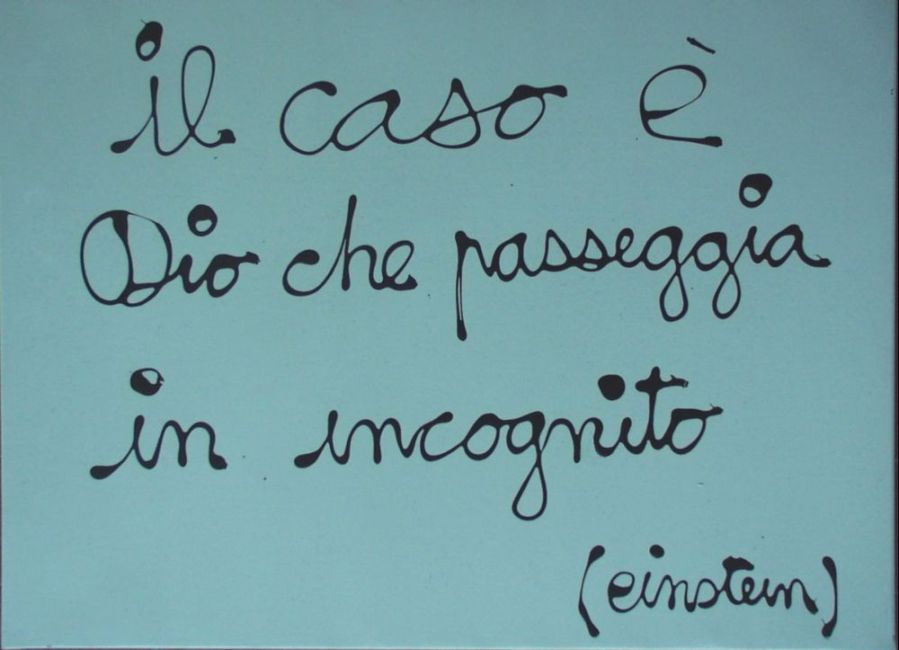 il caso è
Dio che passeggia
in incognito
(einstein)